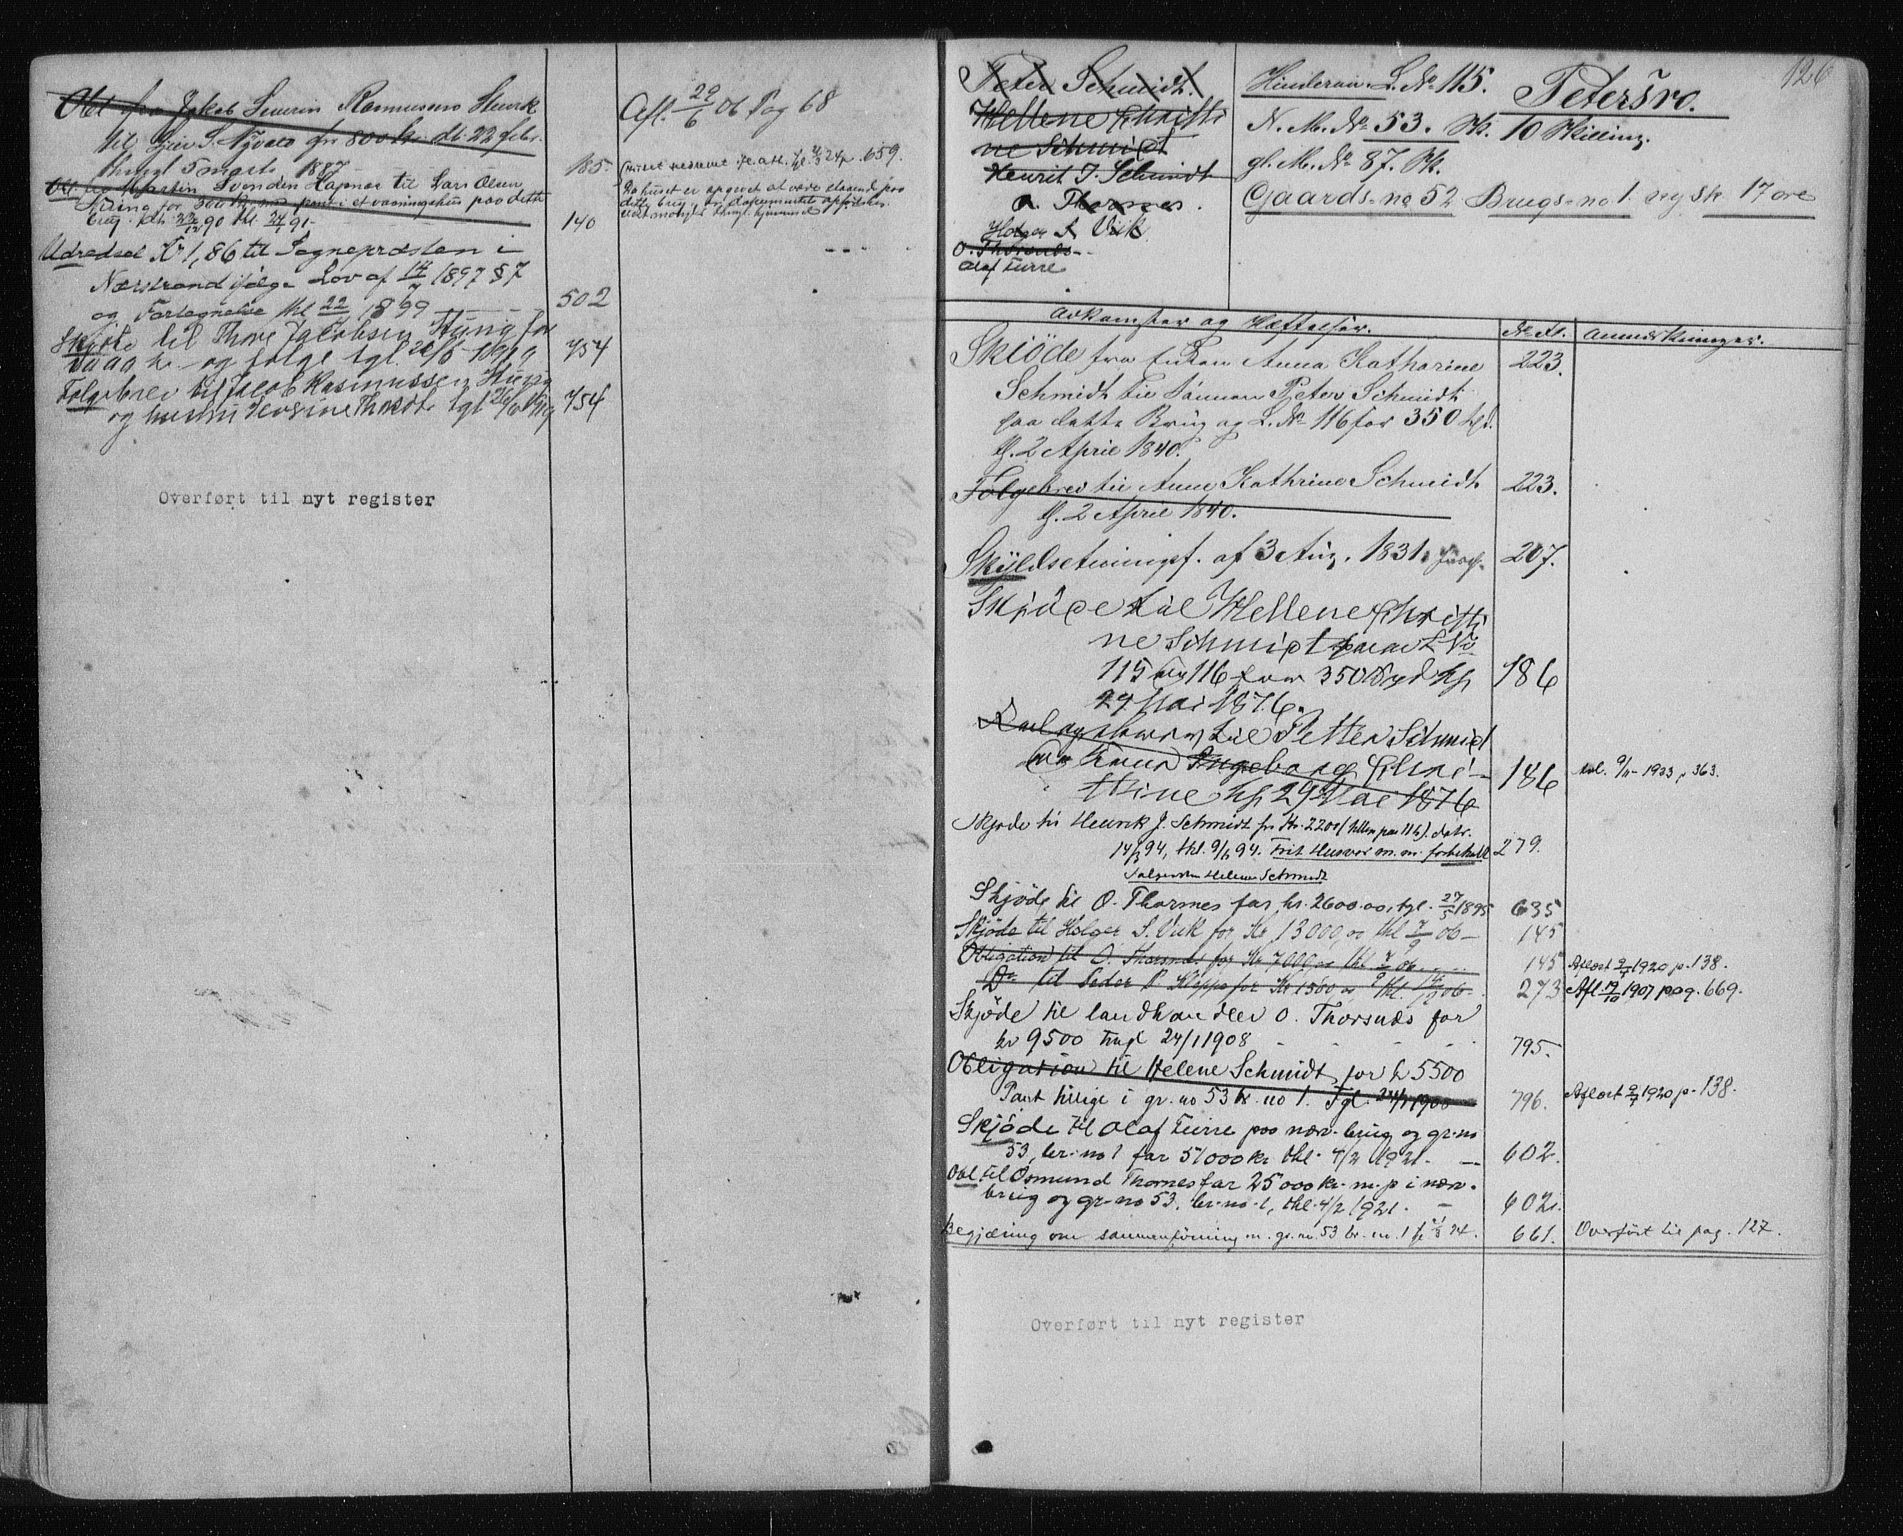 Obl fra Jakob Severin Rasmussens Stunk
til S. for 800 kr. dt. 22 febr.
thingl 5 marts 1887 185.
Afl. 29/6 06 Pag 68
Martin Svendsen Hapnas til Lars Olsen
for 300 kr. med pant i et vaaningshus paa dette
brug. dt. 23/12 90 thl 24/1 91. 140
Huset nedrevet 24 p. 659.
Da huset er opgivet at være staaende paa
Udredsel Kr 1,86 til Sognepræsten i
Nærstrand ifølge Lov af 14/7 1897 § 7
og Fortegnelse thl 22/ 1899 502
Skjøte til Thore Jakobsen Stunig for
kr. og følge tgl. 26/6 1919 454
Følgebrev til Jakob Rasmussen Stunig
og hustru tgl 26/6 1919 454
Overført til nyt register
126
Peter Schmidt.
Hellene Christi
ne Schmidt
Henrik J. Schmidt
O. Thormes.
Holger S. Vik
O. Thorsnes
Olaf Eurre
Hinderaa L. No 115. Petersro.
N. M. No 53. Sk. 10 Skilling.
gl. M. No 87. Sk.
Gaards-no 52 Brugs-no 1. ny sk. 17 øre
Adkomster og Hæftelser. No Fl. Anmærkninger.
Skiøde fra Enken Anna Katharine 223.
Schmidt til Sønnen Peter Schmidt
paa dette Brug og L. No 116 for 350 Spd.
tl. 2 April 1840.
Følgebrev til Anne Kathrine Schmidt 223.
tl. 2 April 1840.
Skyldsetningsf. af 3 Aug. 1831. 207.
Skjøde til Hellene Christi
ne Schmidt paa L No
115 og 116 for 350 Spd 186
29 Mai 1876.
til Petter Schmidt
og Kone Ingeborg Chri-
stine 29 Mai 1876 186 9/11 - 1933 p 363.
Skjøde til Henrik J. Schmidt for Kr. 2200 (tillige paa 116). datr.
14/3 94, thl. 9/6 94. Frit Husvær m. m. forbeholdt 279.
Sælgersken Helene Schmidt
Skjøde til O. Thormes for kr. 2600.00, tgl. 27/5 1895 635
Skjøde til Holger S. Vik for Kr 13000,00 thl 7/9 06 - 145
Obligation til O. Thorsnes for Kr 7000,00 thl 7/9 06. 145 Aflæst 9/7 1920 p. 138.
Do til Peder P. Kleppe for Kr 1500 thl. 06. 273 Afl. 19/10 1907 pag. 669.
Skjøde til landhandler O. Thorsnæs for
kr 9500 tingl 24/1 1908 795.
Obligation til Helene Schmidt for k 5500
Pant tillige i gr. no 53 br. no 1. Tgl. 24/1 1908 796. Aflæst 9/7 1920 p. 138.
Skjøde til Olaf Eurre paa nærv. brug og gr-no
53, br-no 1 for 51000 kr. thl. 4/2 1921. - 602.
Obl. til Osmund Thormes for 25000 kr. m. p. i nærv.
brug og gr-no 53. br-no 1, thl. 4/2 1921. - 602.
Begjæring om sammenføining m. gr. no. 53 br. no. 1 24. 661. Overført til pag. 127.
Overført til nyt register